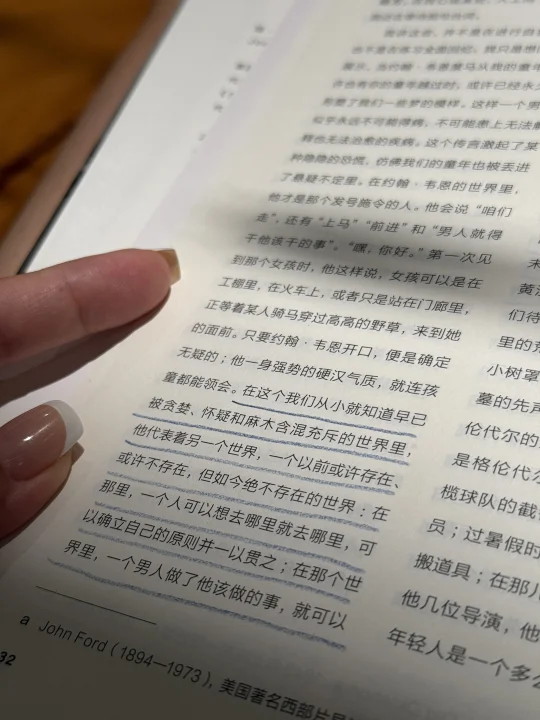 似乎永远不可能得病，不可能患上无法解
释也无法治愈的疾病。这个传言激起了某
种隐隐的恐慌，仿佛我们的童年也被丢进
了悬疑不定里。在约翰·韦恩的世界里，
他才是那个发号施令的人。他会说“咱们
走”，还有“上马”“前进”和“男人就得
干他该干的事”。“嘿，你好。”第一次见
到那个女孩时，他这样说，女孩可以是在
工棚里，在火车上，或者只是站在门廊里，
正等着某人骑马穿过高高的野草，来到她
的面前。只要约翰·韦恩开口，便是确定
无疑的；他一身强势的硬汉气质，就连孩
童都能领会。在这个我们从小就知道早已
被贪婪、怀疑和麻木含混充斥的世界里，
他代表着另一个世界，一个以前或许存在、
或许不存在，但如今绝不存在的世界：在
那里，一个人可以想去哪里就去哪里，可
以确立自己的原则并一以贯之；在那个世
界里，一个男人做了他该做的事，就可以
a John Ford（1894—1973），美国著名西部片
32
黄
们待
里的荒
小树罩
墓的先声
伦代尔的
是格伦代尔
榄球队的截
员；过暑假时
搬道具；在那儿
他几位导演，他
年轻人是一个多么